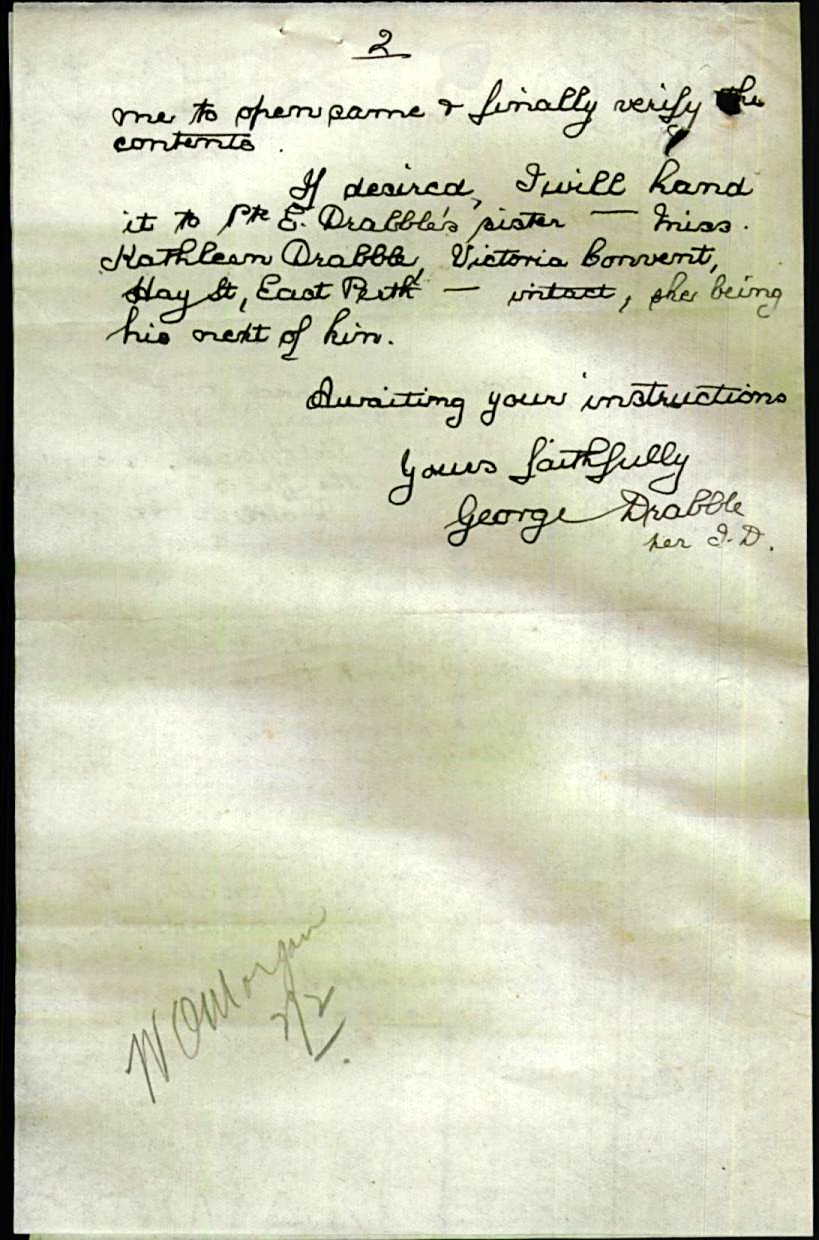 2
me to open same & finally verify the
contents.
If desired, I will hand
it to Pte E. Drabble's sister — Miss.
Kathleen Drabble, Victoria Convent,
Hay St, East Perth — intact, she being
his next of kin.
Awaiting your instructions
Yours faithfully
George Drabble
per I. D.
W O Morgan